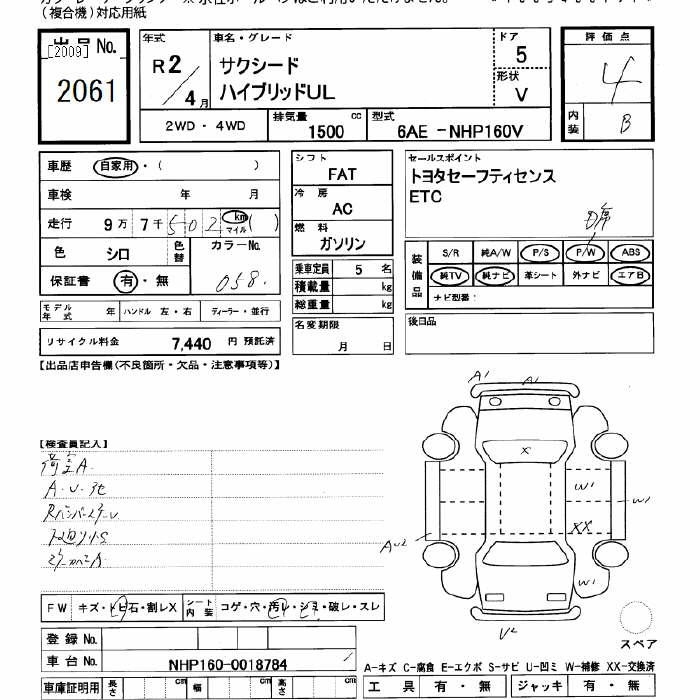 (複合機)対応用紙
出品No.
[2009]
2061
年式
R2/4月
車名・グレード
サクシード
ハイブリッドUL
ドア
5
形状
V
評価点
4
内装
B
2WD・4WD
排気量 1500 cc
型式 6AE -NHP160V
車歴 自家用・( )
車検 年 月
走行 9万7千502 km マイル ( )
色 シロ 色替
カラーNo. 058
保証書 有・無
モデル年式 年 ハンドル 左・右 ディーラー・並行
リサイクル料金 7,440 円 預託済
シフト
FAT
冷房
AC
燃料
ガソリン
乗車定員 5 名
積載量 kg
総重量 kg
名変期限
月 日
セールスポイント
トヨタセーフティセンス
ETC
D席
装備品
S/R 純A/W P/S P/W ABS
純TV 純ナビ 革シート 外ナビ エアB
ナビ型番:
後日品
【出品店申告欄(不良箇所・欠品・注意事項等)】
【検査員記入】
A1
A1
X
W1
W1
XX
AU2
W1
U2
スペア
FW キズ・トビ石・割レX シート内装 コゲ・穴・汚レ・シミ・破レ・スレ
登録No.
車台No. NHP160-0018784
車庫証明用 長さ cm 幅 cm 高さ cm
A-キズ C-腐食 E-エクボ S-サビ U-凹ミ W-補修 XX-交換済
工具 有・無 ジャッキ 有・無